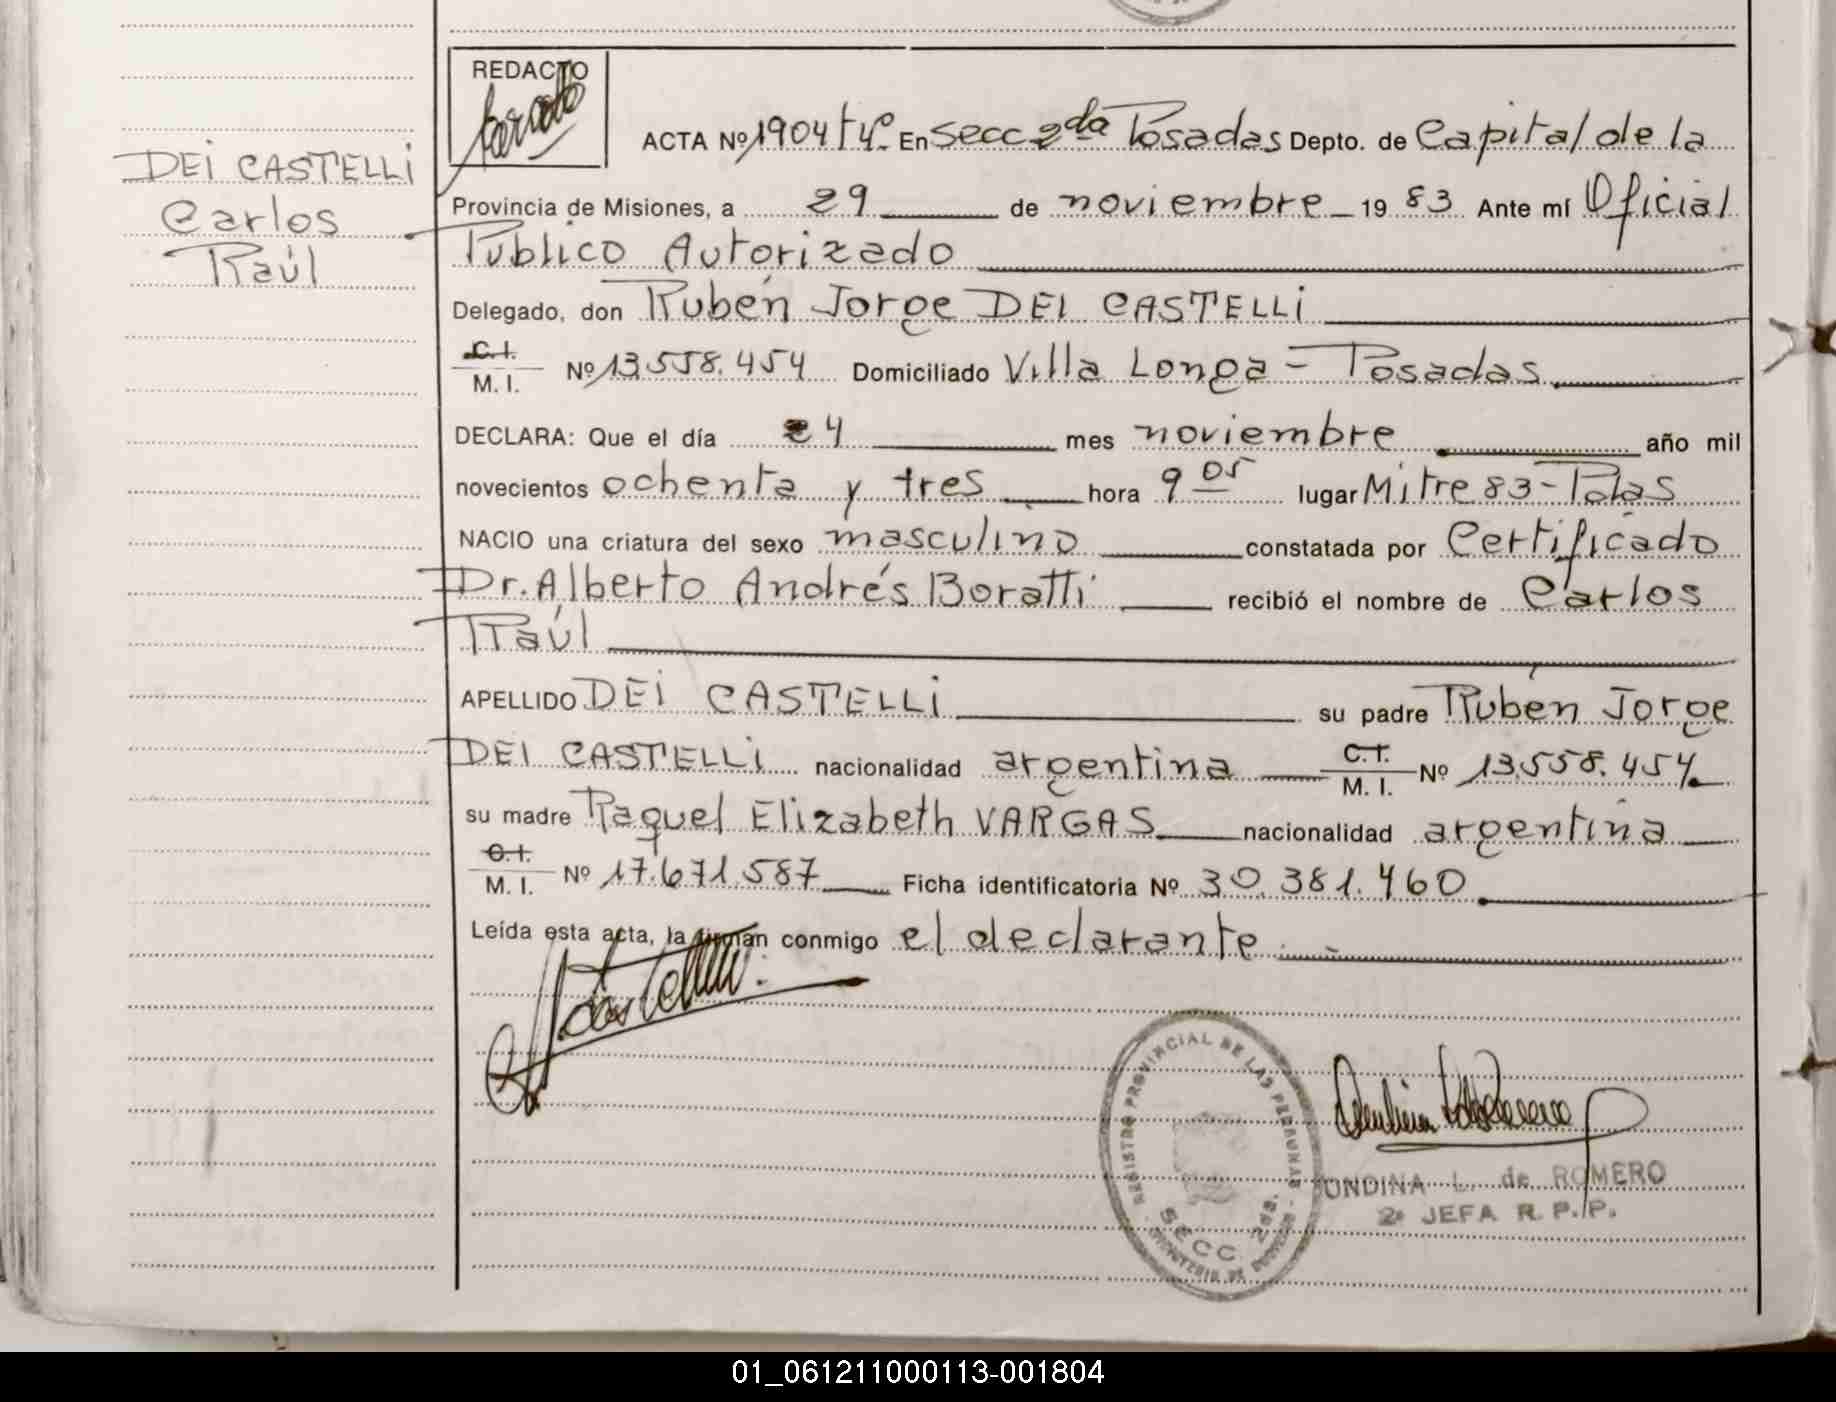 REDACTO
ACTA Nº 1904 Tº 4º En Secc 2da Posadas Depto. de Capital de la
DEI CASTELLI
Carlos
Raúl
Provincia de Misiones, a 29 de noviembre 19 83 Ante mí Oficial
Público Autorizado
Delegado, don Rubén Jorge DEI CASTELLI
C.I.
M. I. Nº 13.558.454 Domiciliado Villa Longa - Posadas
DECLARA: Que el día 24 mes noviembre año mil
novecientos ochenta y tres hora 9 05 lugar Mitre 83 - Pdas
NACIO una criatura del sexo masculino constatada por Certificado
Dr. Alberto Andrés Boratti recibió el nombre de Carlos
Raúl
APELLIDO DEI CASTELLI su padre Rubén Jorge
DEI CASTELLI nacionalidad argentina C.I. M. I. Nº 13.558.454
su madre Raquel Elizabeth VARGAS nacionalidad argentina
C.I.
M. I. Nº 17.671.587 Ficha identificatoria Nº 30.381.460
Leída esta acta, la firman conmigo el declarante
REGISTRO PROVINCIAL DE LAS PERSONAS
SECC. 2da.
PROVINCIA DE MISIONES
ONDINA L. de ROMERO
2ª JEFA R. P. P.
01_061211000113-001804